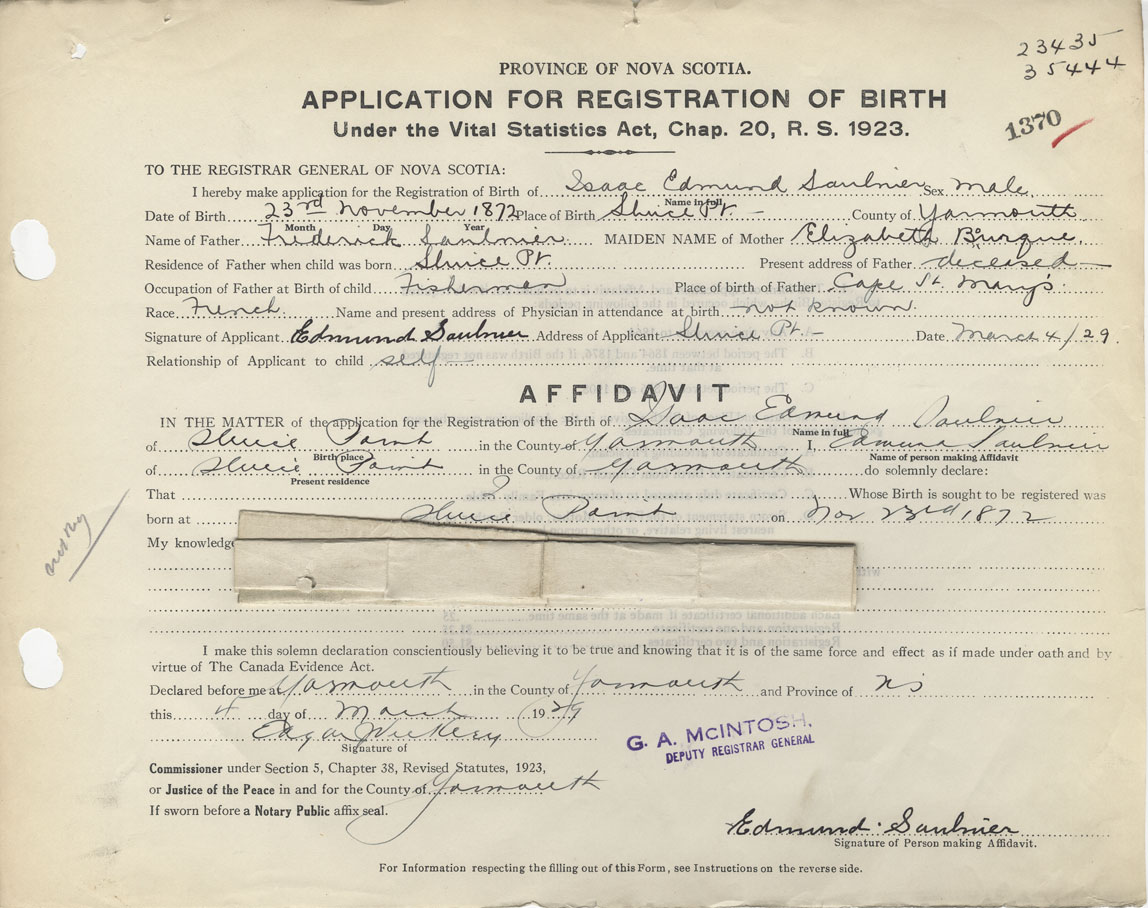 23435
35444
PROVINCE OF NOVA SCOTIA.
APPLICATION FOR REGISTRATION OF BIRTH
1370
Under the Vital Statistics Act, Chap. 20, R. S. 1923.
TO THE REGISTRAR GENERAL OF NOVA SCOTIA:
I hereby make application for the Registration of Birth of Isaac Edmund Saulnier Sex male
Name in full
Date of Birth 23rd November 1872 Place of Birth Sluice Pt. County of Yarmouth
Month Day Year
Name of Father Frederick Saulnier MAIDEN NAME of Mother Elizabeth Burque.
Residence of Father when child was born Sluice Pt. Present address of Father deceased
Occupation of Father at Birth of child Fisherman Place of birth of Father Cape St. Mary's
Race French Name and present address of Physician in attendance at birth not known.
Signature of Applicant Edmund Saulnier Address of Applicant Sluice Pt. Date March 4/29.
Relationship of Applicant to child self
AFFIDAVIT
IN THE MATTER of the application for the Registration of the Birth of Isaac Edmund Saulnier
Name in full
of Sluice Point in the County of Yarmouth I, Edmund Saulnier
Birth place Name of person making Affidavit
of Sluice Point in the County of Yarmouth do solemnly declare:
Present residence
That I Whose Birth is sought to be registered was
born at Sluice Point on Nov 23rd 1872
My knowledge
I make this solemn declaration conscientiously believing it to be true and knowing that it is of the same force and effect as if made under oath and by
virtue of The Canada Evidence Act.
Declared before me at Yarmouth in the County of Yarmouth and Province of NS
this 4 day of March 1929
Edgar
Signature of
G. A. McINTOSH.
DEPUTY REGISTRAR GENERAL
Commissioner under Section 5, Chapter 38, Revised Statutes, 1923,
or Justice of the Peace in and for the County of Yarmouth
If sworn before a Notary Public affix seal.
Edmund Saulnier
Signature of Person making Affidavit.
For Information respecting the filling out of this Form, see Instructions on the reverse side.